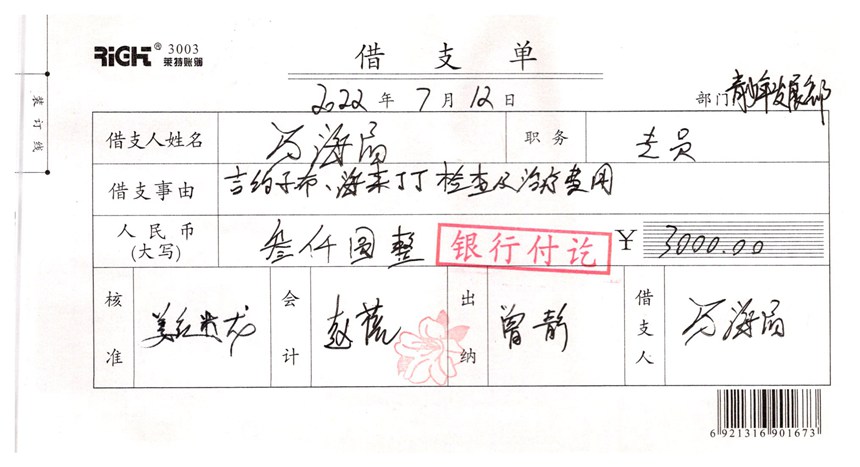 RiGHT® 3003
莱特账簿
借支单
2022年7月12日
部门 青少年发展部
装订线
借支人姓名 马海局 职务 专员
借支事由 吉约子布、海来丁丁检查及治疗费用
人民币(大写) 叁仟圆整 银行付讫 ¥ 3000.00
核准 会计 赵 出纳 曾静 借支人 马海局
6 921316 901673